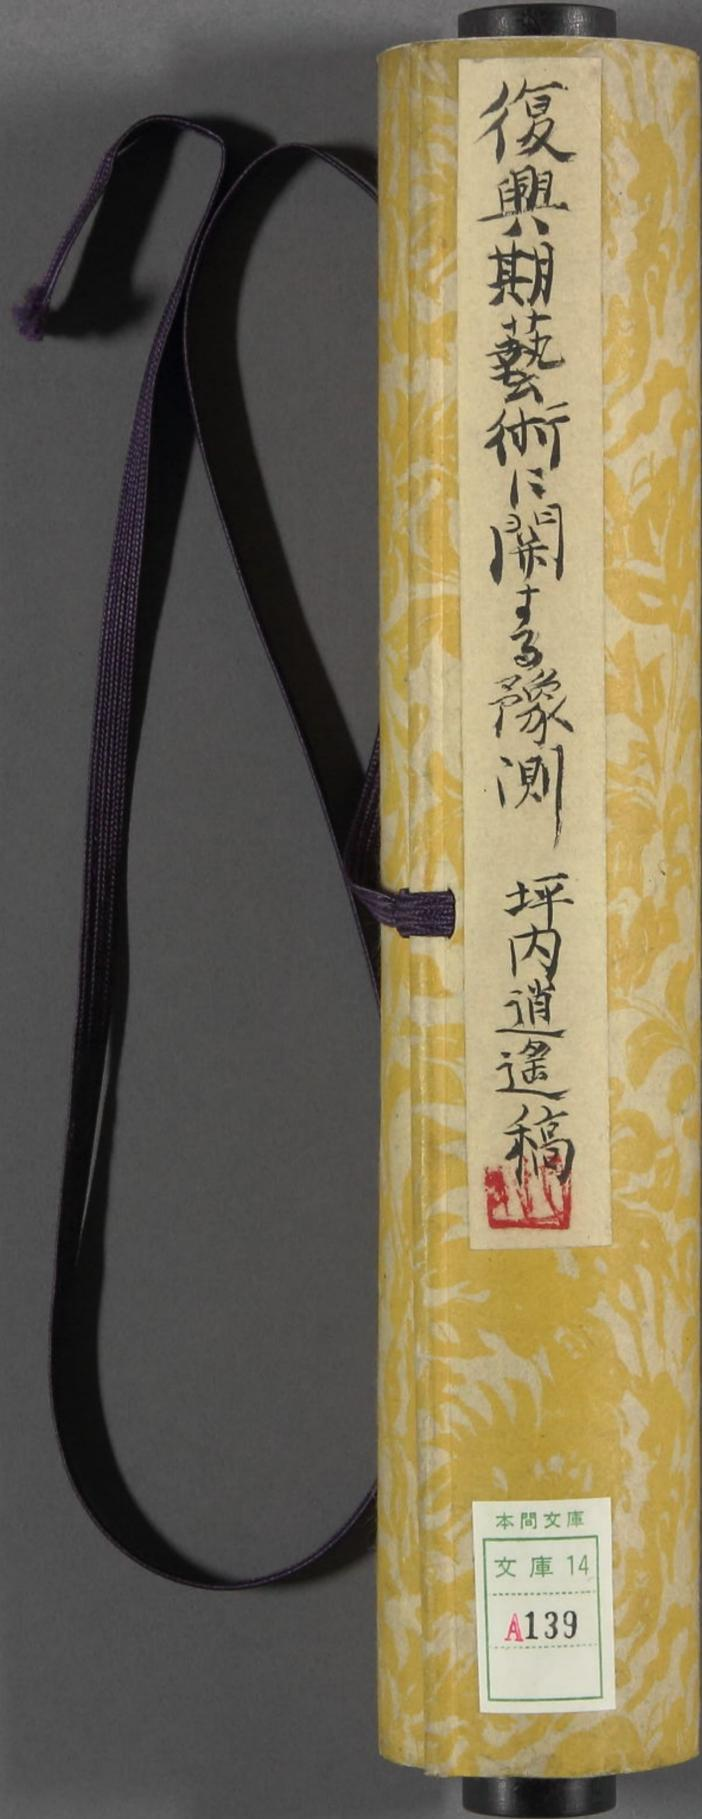 復興期藝術に関する豫測 坪内逍遙稿
本間文庫
文庫 14
A139